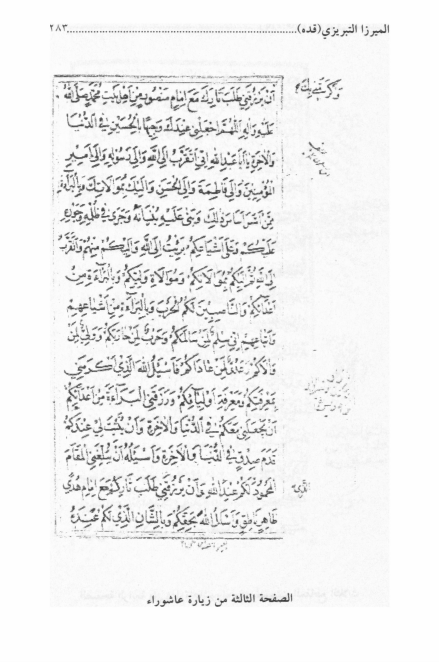 الميرزا التبريزي(قده)................................................................٢٨٣
وكرمني بك
أن يرزقني طلب ثارك مع إمام منصور من أهل بيت محمد صلى الله
عليه وآله اللهم اجعلني عندك وجيها بالحسين في الدنيا
والآخرة يا أبا عبد الله إني أتقرب إلى الله وإلى رسوله وإلى أمير
المؤمنين وإلى فاطمة وإلى الحسن وإليك بموالاتك وبالبراءة
ممن أسس أساس ذلك وبنى عليه بنيانه وجرى في ظلمه وجوره
عليكم وعلى أشياعكم برئت إلى الله وإليكم منهم وأتقرب
إلى الله ثم إليكم بموالاتكم وموالاة وليكم وبالبراءة من
أعدائكم والناصبين لكم الحرب وبالبراءة من أشياعهم
وأتباعهم إني سلم لمن سالمكم وحرب لمن حاربكم وولي لمن
والاكم وعدو لمن عاداكم فأسئل الله الذي أكرمني
بمعرفتكم ومعرفة أوليائكم ورزقني البراءة من أعدائكم
أن يجعلني معكم في الدنيا والآخرة وأن يثبت لي عندكم
قدم صدق في الدنيا والآخرة وأسئله أن يبلغني المقام
المحمود لكم عند الله وأن يرزقني طلب ثاركم مع إمام هدى
ظاهر ناطق وأسئل الله بحقكم وبالشأن الذي لكم عنده
الصفحة الثالثة من زيارة عاشوراء